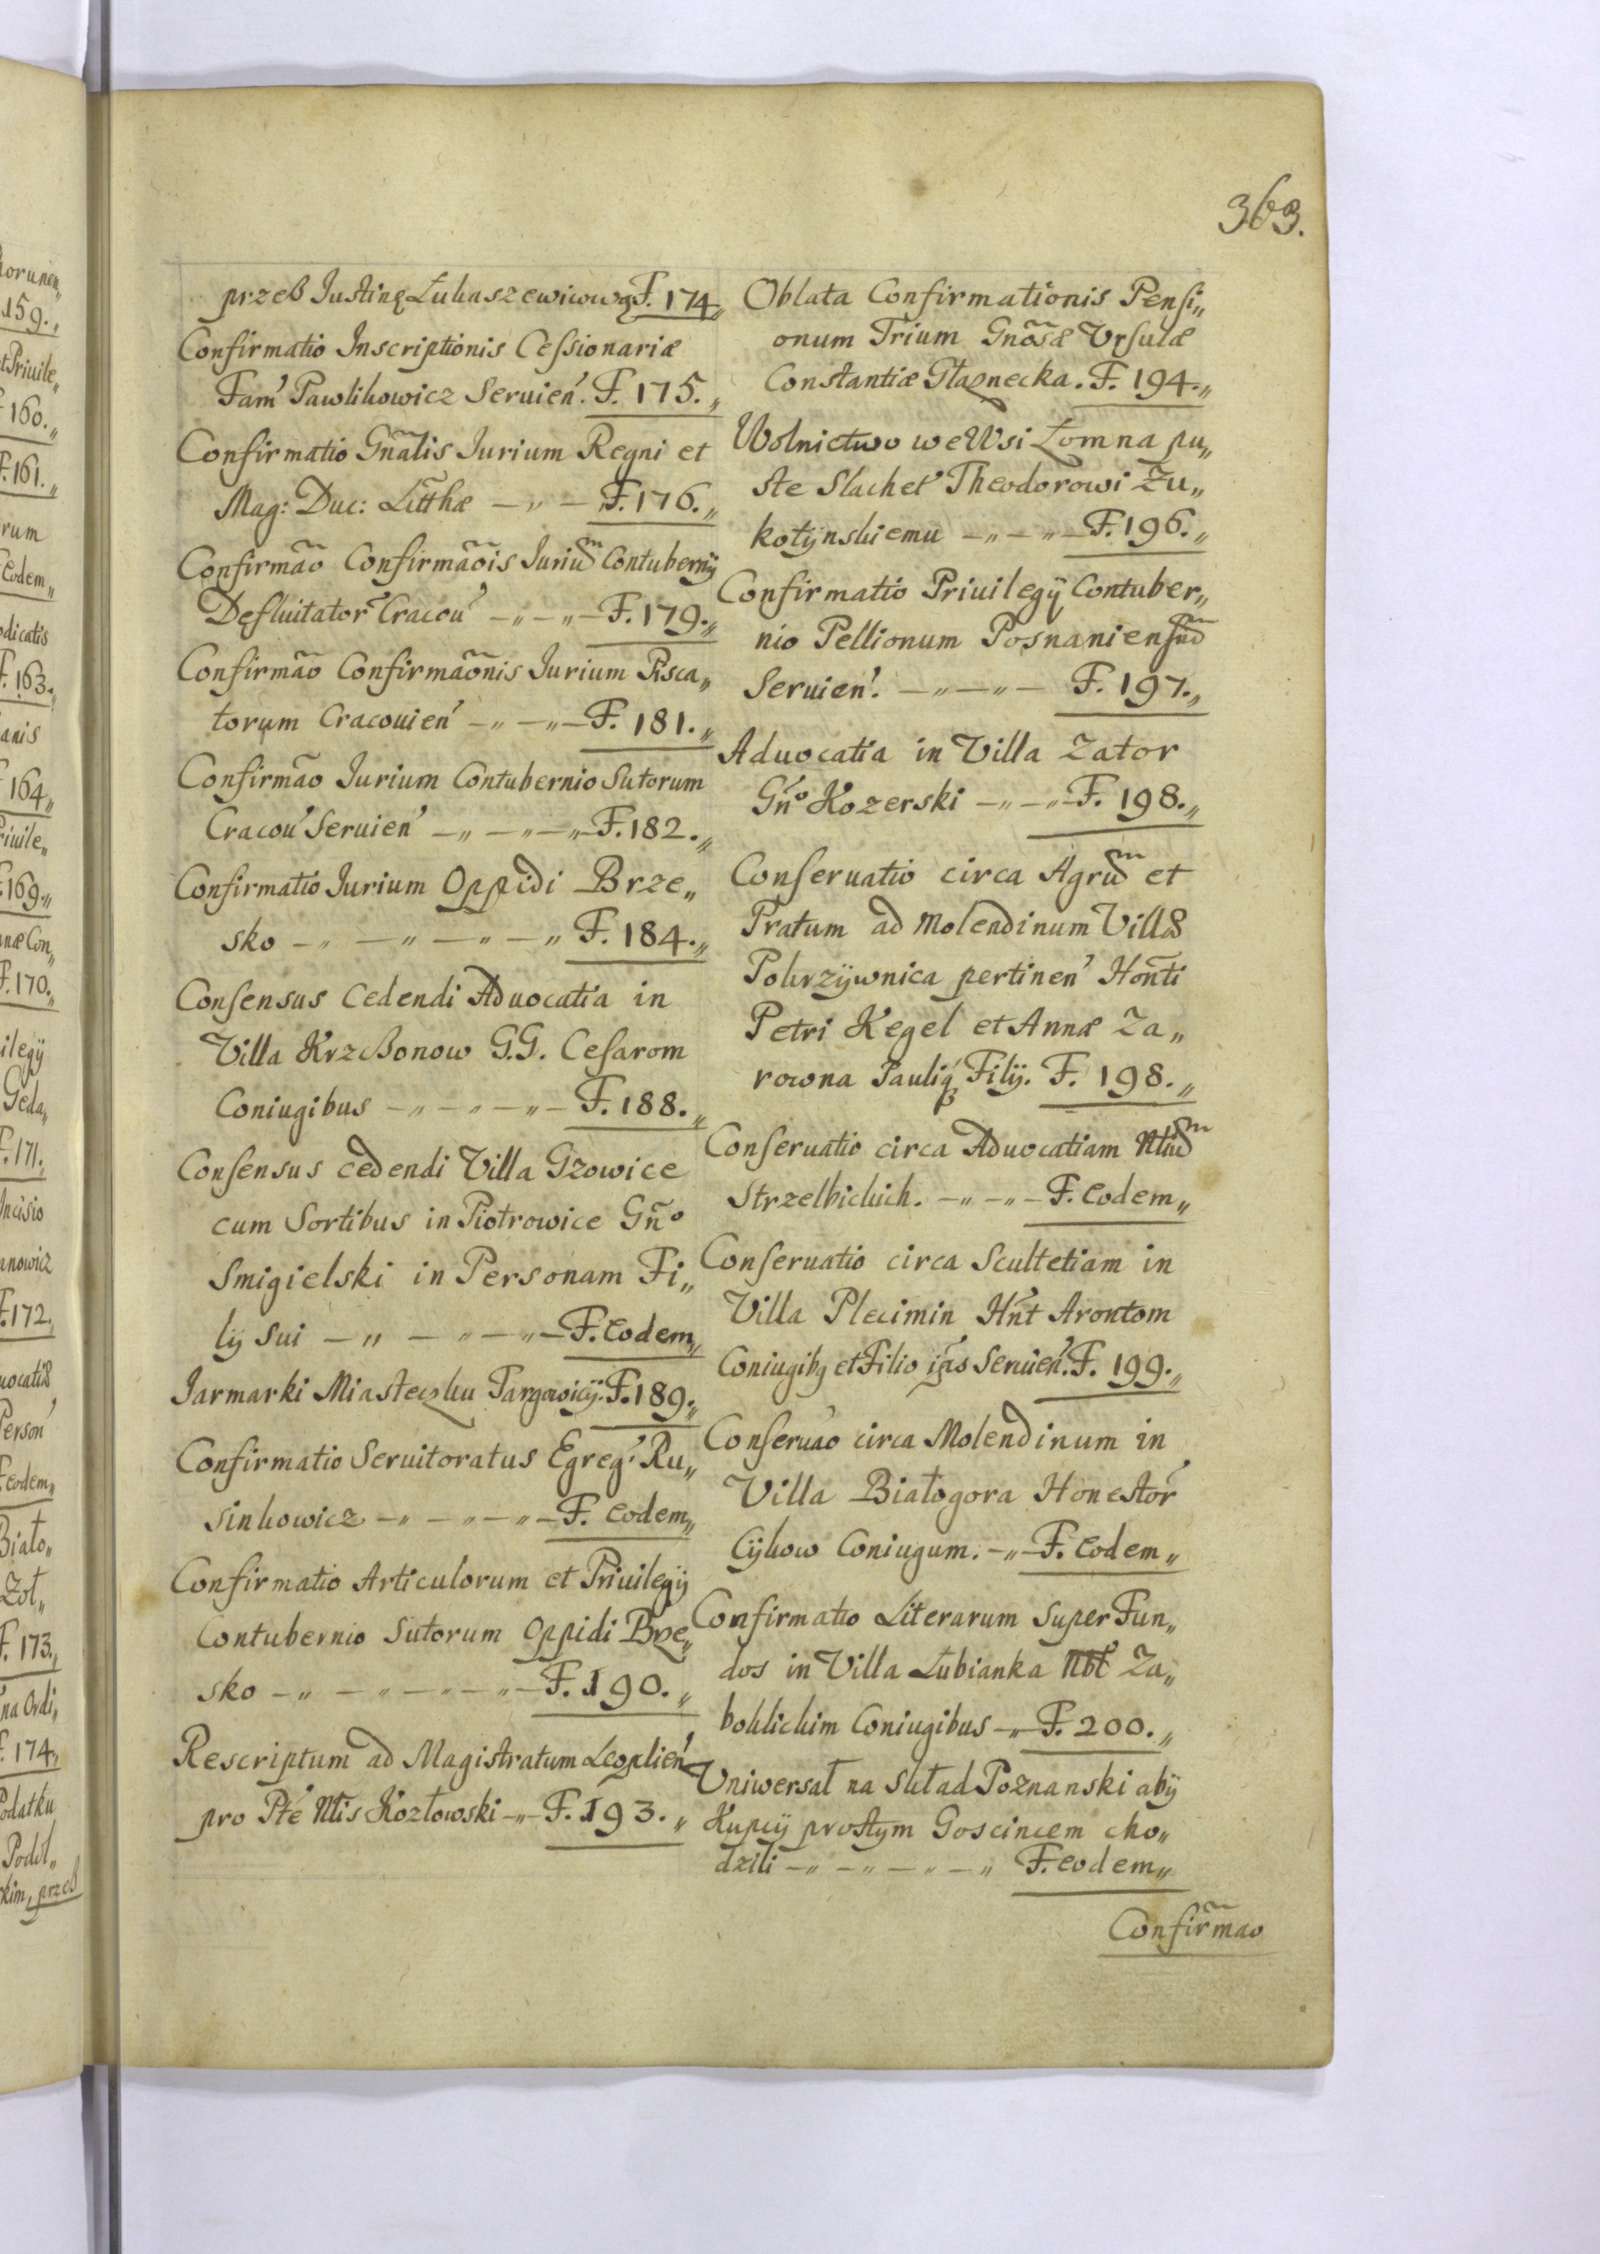 363.
przeß Justinę Łukaszewicową F. 174„
Confirmatio Inscriptionis Cessionariæ
Fam' Pawlikowicz Seruien'. F. 175.„
Confirmatio Gñalis Jurium Regni et
Mag: Duc: Litthæ —„— F. 176.„
Confirmão Confirmãois Juriũm Contubernÿ
Defluitator' Cracou' —„—„— F. 179.„
Confirmão Confirmãonis Jurium Pisca„
torum Cracouien' —„—„— F. 181.„
Confirmão Jurium Contubernio Sutorum
Cracou' Seruien' —„—„—„— F. 182.„
Confirmatio Jurium Oppidi Brze„
sko —„—„—„—„ F. 184.„
Consensus Cedendi Aduocatia in
Villa Krzczonow G.G. Cesarom
Coniugibus —„—„—„— F. 188.„
Consensus cedendi Villa Gzowice
cum Sortibus in Piotrowice Gñ°
Smigielski in Personam Fi„
lÿ Sui —„—„—„— F. Eodem„
Jarmarki Miasteczku Targowicÿ. F. 189.„
Confirmatio Seruitoratus Egreg' Ru„
sinkowicz —„—„—„— F. Eodem„
Confirmatio Articulorum et Priuilegÿ
Contubernio Sutorum Oppidi Brze„
sko —„—„—„—„— F. 190.„
Rescriptum ad Magistratum Leoplien'
pro Pte' Ntis Kozłowski —„— F. 193.„
Oblata Confirmationis Pensi„
onum Trium Gnõsæ Vrsulæ
Constantiæ Płaznecka. F. 194.„
Wolnictwo we Wsi Łomna pu„
ste Slachet' Theodorowi Zu„
kotÿnskiemu —„—„— F. 196.„
Confirmatio Priuilegÿ Contuber„
nio Pellionum Posnaniensiũm
Seruien'. —„—„— F. 197.„
Aduocatia in Villa Zator
Gñ° Kozerski —„—„— F. 198.„
Conseruatio circa Agrũm et
Pratum ad Molendinum Villæ
Pokrzÿwnica pertinen' Honti
Petri Kegel et Annæ Za„
rowna Filÿ. F. 198.„
Conseruatio circa Aduocatiam Ntiũm
Strzelbickich. —„—„— F. Eodem„
Conseruatio circa Scultetiam in
Villa Plecimin Hñt Arontom
Coniugibg et Filio Seruien'. F. 199.„
Conseruão circa Molendinum in
Villa Białogora Honestor'
Cÿkow Coniugum. —„— F. Eodem„
Confirmatio Literarum Super Fun„
dos in Villa Łubianka Nbl' Za„
boklickim Coniugibus —„— F. 200.„
Vniwersał na Skład Poznanski abÿ
Kupcÿ prostym Goscincem cho„
dzili —„—„—„—„ F. Eodem„
Confirmao